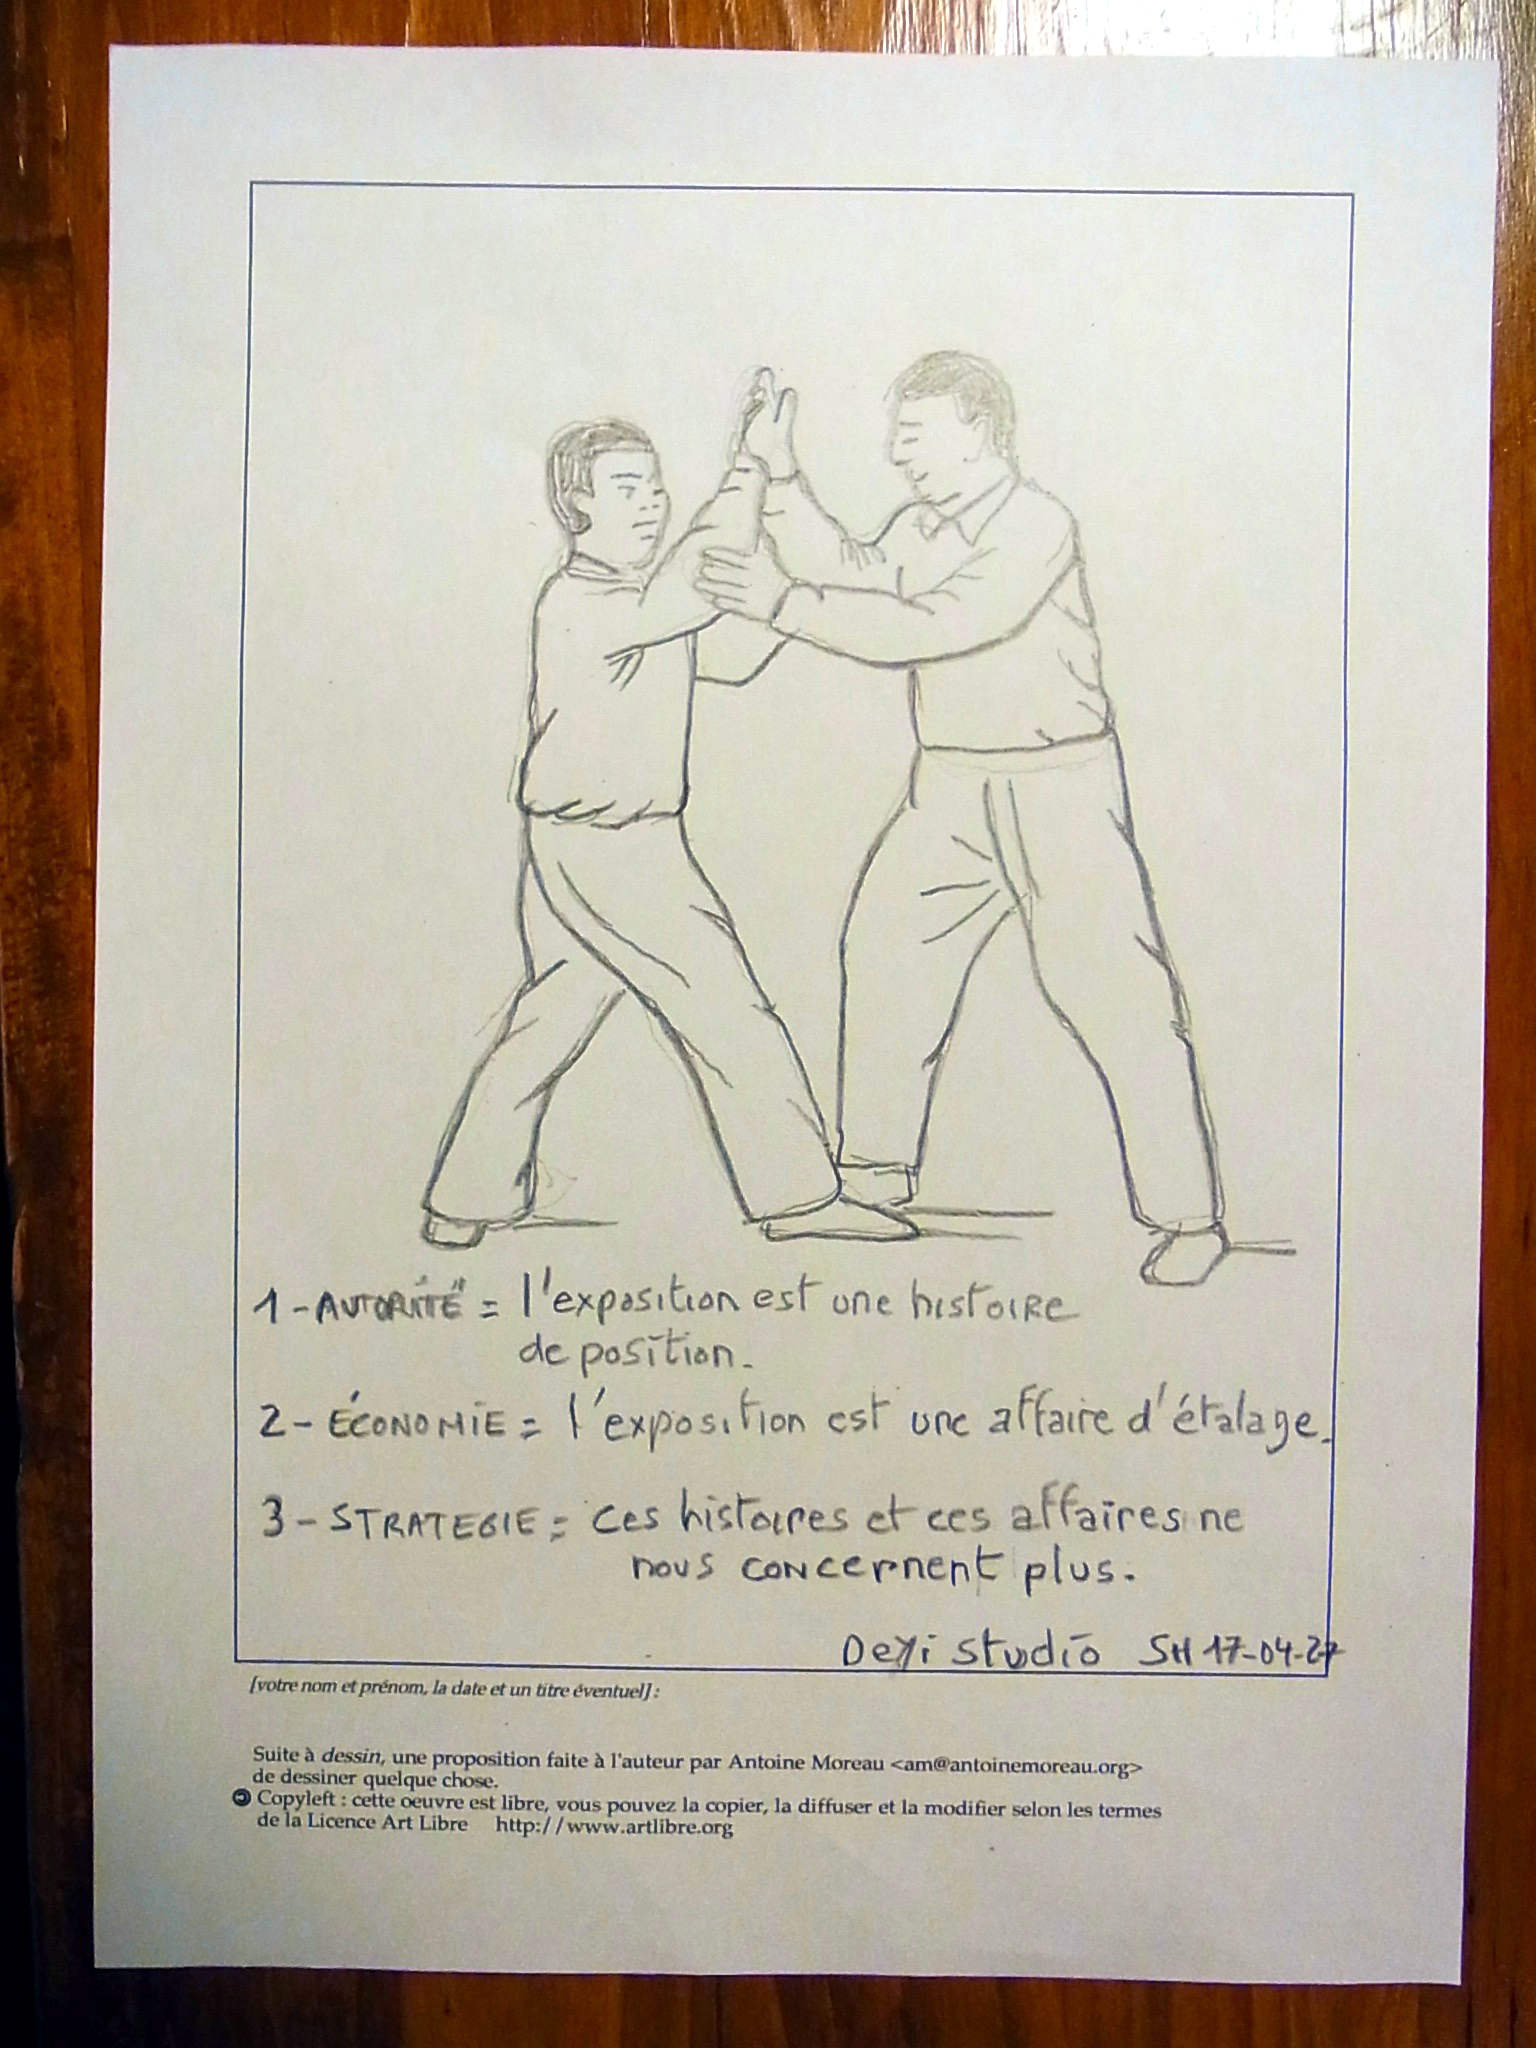 1 - AUTORITÉ = l'exposition est une histoire
de position.
2 - ÉCONOMIE = l'exposition est une affaire d'étalage.
3 - STRATEGIE = ces histoires et ces affaires ne
nous concernent plus.
Studio SH 17-04-27
[votre nom et prénom, la date et un titre éventuel] :
Suite à dessin, une proposition faite à l'auteur par Antoine Moreau <am@antoinemoreau.org>
de dessiner quelque chose.
Copyleft : cette oeuvre est libre, vous pouvez la copier, la diffuser et la modifier selon les termes
de la Licence Art Libre http://www.artlibre.org